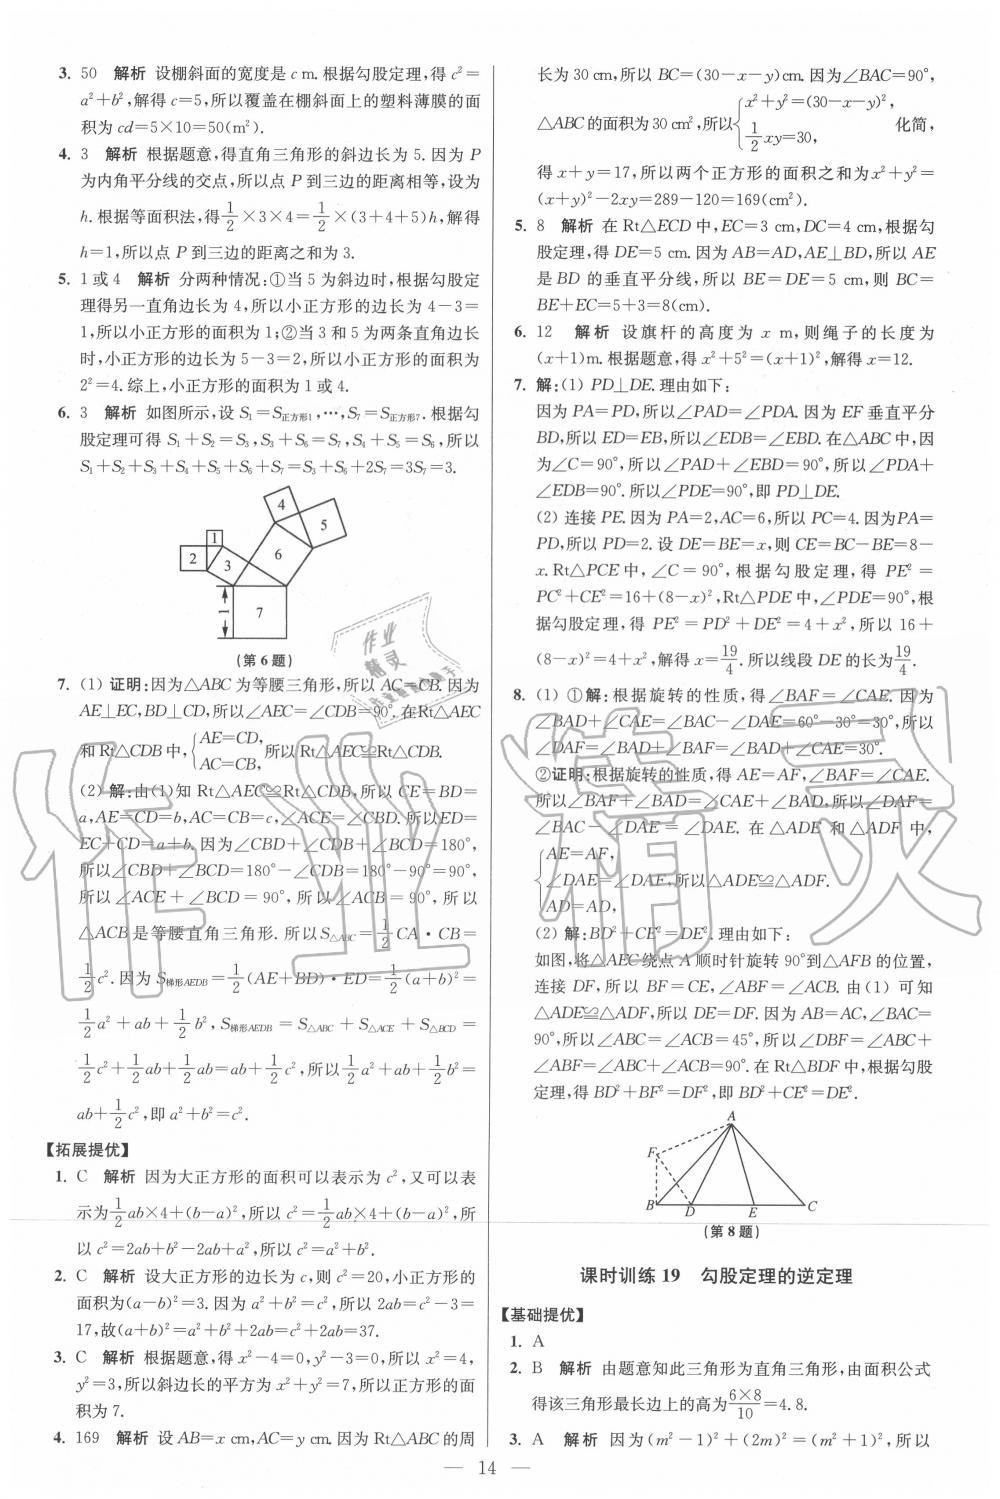 3. 50　解析　设棚斜面的宽度是 c m. 根据勾股定理,得 c²=
a²+b²,解得 c=5,所以覆盖在棚斜面上的塑料薄膜的面
积为 cd=5×10=50(m²).
4. 3　解析　根据题意,得直角三角形的斜边长为 5. 因为 P
为内角平分线的交点,所以点 P 到三边的距离相等,设为
h. 根据等面积法,得 1/2×3×4=1/2×(3+4+5)h,解得
h=1,所以点 P 到三边的距离之和为 3.
5. 1 或 4　解析　分两种情况:①当 5 为斜边时,根据勾股定
理得另一直角边长为 4,所以小正方形的边长为 4-3=
1,所以小正方形的面积为 1;②当 3 和 5 为两条直角边长
时,小正方形的边长为 5-3=2,所以小正方形的面积为
2²=4. 综上,小正方形的面积为 1 或 4.
6. 3　解析　如图所示,设 S₁=S正方形1,…,S₇=S正方形7. 根据勾
股定理可得 S₁+S₂=S₃,S₃+S₆=S₇,S₄+S₅=S₆,所以
S₁+S₂+S₃+S₄+S₅+S₆+S₇=S₃+S₆+2S₇=3S₇=3.
1 2 3 4 5 6 7 1
(第 6 题)
7. (1) 证明:因为△ABC 为等腰三角形,所以 AC=CB. 因为
AE⊥EC,BD⊥CD,所以∠AEC=∠CDB=90°. 在Rt△AEC
和 Rt△CDB 中,{AE=CD, AC=CB, 所以 Rt△AEC≌Rt△CDB.
(2) 解:由(1)知 Rt△AEC≌Rt△CDB,所以 CE=BD=
a,AE=CD=b,AC=CB=c,∠ACE=∠CBD. 所以ED=
EC+CD=a+b. 因为∠CBD+∠CDB+∠BCD=180°,
所以∠CBD+∠BCD=180°-∠CDB=180°-90°=90°,
所以 ∠ACE+∠BCD=90°,所以 ∠ACB=90°,所以
△ACB 是等腰直角三角形. 所以S△ABC=1/2CA·CB=
1/2c². 因为 S梯形AEDB=1/2(AE+BD)·ED=1/2(a+b)²=
1/2a²+ab+1/2b²,S梯形AEDB=S△ABC+S△ACE+S△BCD=
1/2c²+1/2ab+1/2ab=ab+1/2c²,所以1/2a²+ab+1/2b²=
ab+1/2c²,即 a²+b²=c².
【拓展提优】
1. C　解析　因为大正方形的面积可以表示为 c²,又可以表
示为1/2ab×4+(b-a)²,所以 c²=1/2ab×4+(b-a)²,所
以 c²=2ab+b²-2ab+a²,所以 c²=a²+b².
2. C　解析　设大正方形的边长为 c,则 c²=20,小正方形的
面积为(a-b)²=3. 因为 a²+b²=c²,所以 2ab=c²-3=
17,故(a+b)²=a²+b²+2ab=c²+2ab=37.
3. C　解析　根据题意,得 x²-4=0,y²-3=0,所以 x²=4,
y²=3,所以斜边长的平方为 x²+y²=7,所以正方形的面
积为 7.
4. 169　解析　设 AB=x cm,AC=y cm. 因为 Rt△ABC 的周
长为 30 cm,所以 BC=(30-x-y)cm. 因为∠BAC=90°,
△ABC 的面积为 30 cm²,所以{x²+y²=(30-x-y)², 1/2xy=30, 化简,
得 x+y=17,所以两个正方形的面积之和为 x²+y²=
(x+y)²-2xy=289-120=169(cm²).
5. 8　解析　在 Rt△ECD 中,EC=3 cm,DC=4 cm,根据勾
股定理,得 DE=5 cm. 因为 AB=AD,AE⊥BD,所以 AE
是 BD 的垂直平分线,所以 BE=DE=5 cm,则 BC=
BE+EC=5+3=8(cm).
6. 12　解析　设旗杆的高度为 x m,则绳子的长度为
(x+1)m. 根据题意,得 x²+5²=(x+1)²,解得 x=12.
7. 解:(1) PD⊥DE. 理由如下:
因为 PA=PD,所以∠PAD=∠PDA. 因为 EF 垂直平分
BD,所以 ED=EB,所以∠EDB=∠EBD. 在△ABC 中,因
为∠C=90°,所以∠PAD+∠EBD=90°,所以∠PDA+
∠EDB=90°. 所以∠PDE=90°,即 PD⊥DE.
(2) 连接 PE. 因为 PA=2,AC=6,所以 PC=4. 因为PA=
PD,所以 PD=2. 设 DE=BE=x,则 CE=BC-BE=8-
x. Rt△PCE 中,∠C=90°,根据勾股定理,得 PE²=
PC²+CE²=16+(8-x)²,Rt△PDE 中,∠PDE=90°,根
据勾股定理,得 PE²=PD²+DE²=4+x²,所以 16+
(8-x)²=4+x²,解得 x=19/4. 所以线段 DE 的长为19/4.
8. (1) ①解:根据旋转的性质,得∠BAF=∠CAE. 因为
∠BAD+∠CAE=∠BAC-∠DAE=60°-30°=30°,所以
∠DAF=∠BAD+∠BAF=∠BAD+∠CAE=30°.
②证明:根据旋转的性质,得 AE=AF,∠BAF=∠CAE.
所以∠BAF+∠BAD=∠CAE+∠BAD,所以∠DAF=
∠BAC-∠DAE=∠DAE. 在 △ADE 和 △ADF 中,
{AE=AF,
∠DAE=∠DAF,所以△ADE≌△ADF.
AD=AD,
(2) 解:BD²+CE²=DE². 理由如下:
如图,将△AEC 绕点 A 顺时针旋转 90°到△AFB 的位置,
连接 DF,所以 BF=CE,∠ABF=∠ACB. 由(1)可知
△ADE≌△ADF,所以 DE=DF. 因为 AB=AC,∠BAC=
90°,所以∠ABC=∠ACB=45°,所以∠DBF=∠ABC+
∠ABF=∠ABC+∠ACB=90°. 在 Rt△BDF 中,根据勾股
定理,得 BD²+BF²=DF²,即 BD²+CE²=DE².
A F B D E C
(第 8 题)
课时训练 19　勾股定理的逆定理
【基础提优】
1. A
2. B　解析　由题意知此三角形为直角三角形,由面积公式
得该三角形最长边上的高为 6×8/10=4.8.
3. A　解析　因为(m²-1)²+(2m)²=(m²+1)²,所以
— 14 —
作业精灵